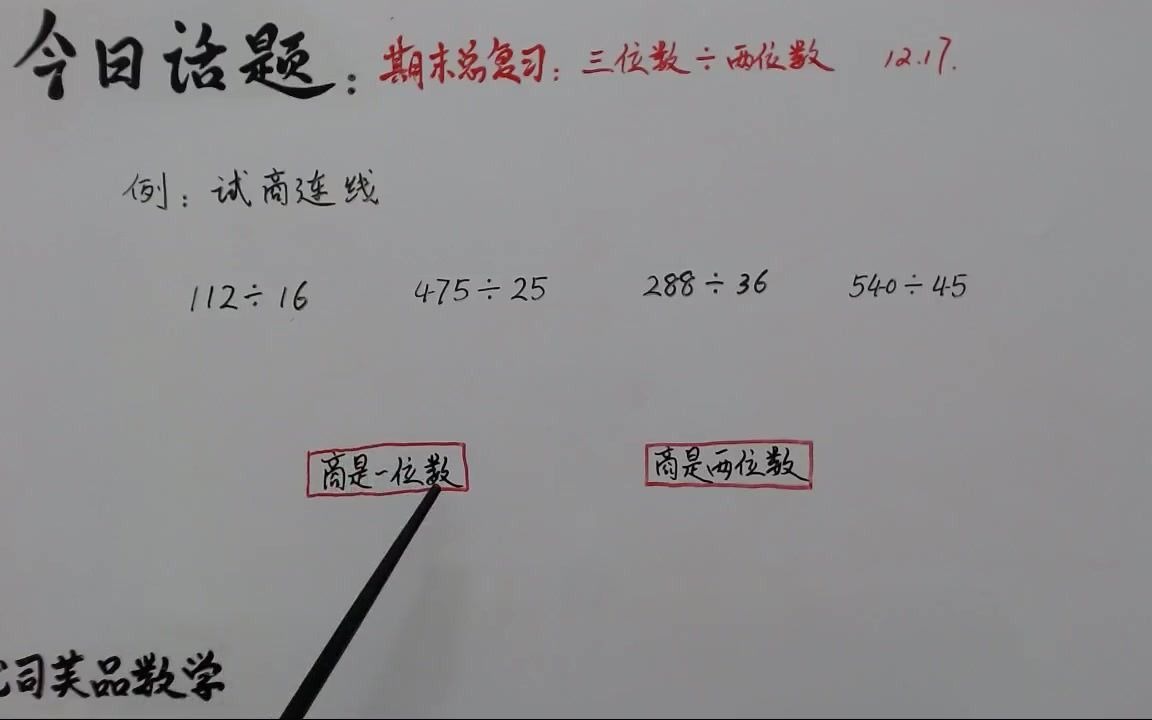 今日话题：期末总复习：三位数÷两位数 12.17.
例：试商连线
112÷16 475÷25 288÷36 540÷45
商是一位数 商是两位数
司芙品数学